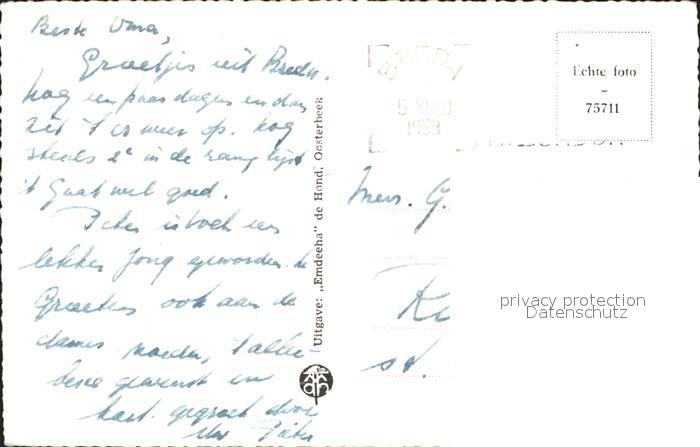 Beste Oma,
Groetjes uit Breda.
Nog een paar dagen en dan
zit 't er weer op. Nog
steeds 2e in de ranglijst
't Gaat wel goed.
Peter is toch een
lekker jong geworden.
Groeten ook aan de
dames moeder,
beste gewenst en
hart. gegroet door
Uw Peter
Uitgave: „Emdeeha” de Hond. Oosterbeek
BREDA
5 XI 20
1958
Echte foto
–
75711
Mevr. G.
privacy protection
Datenschutz
st.